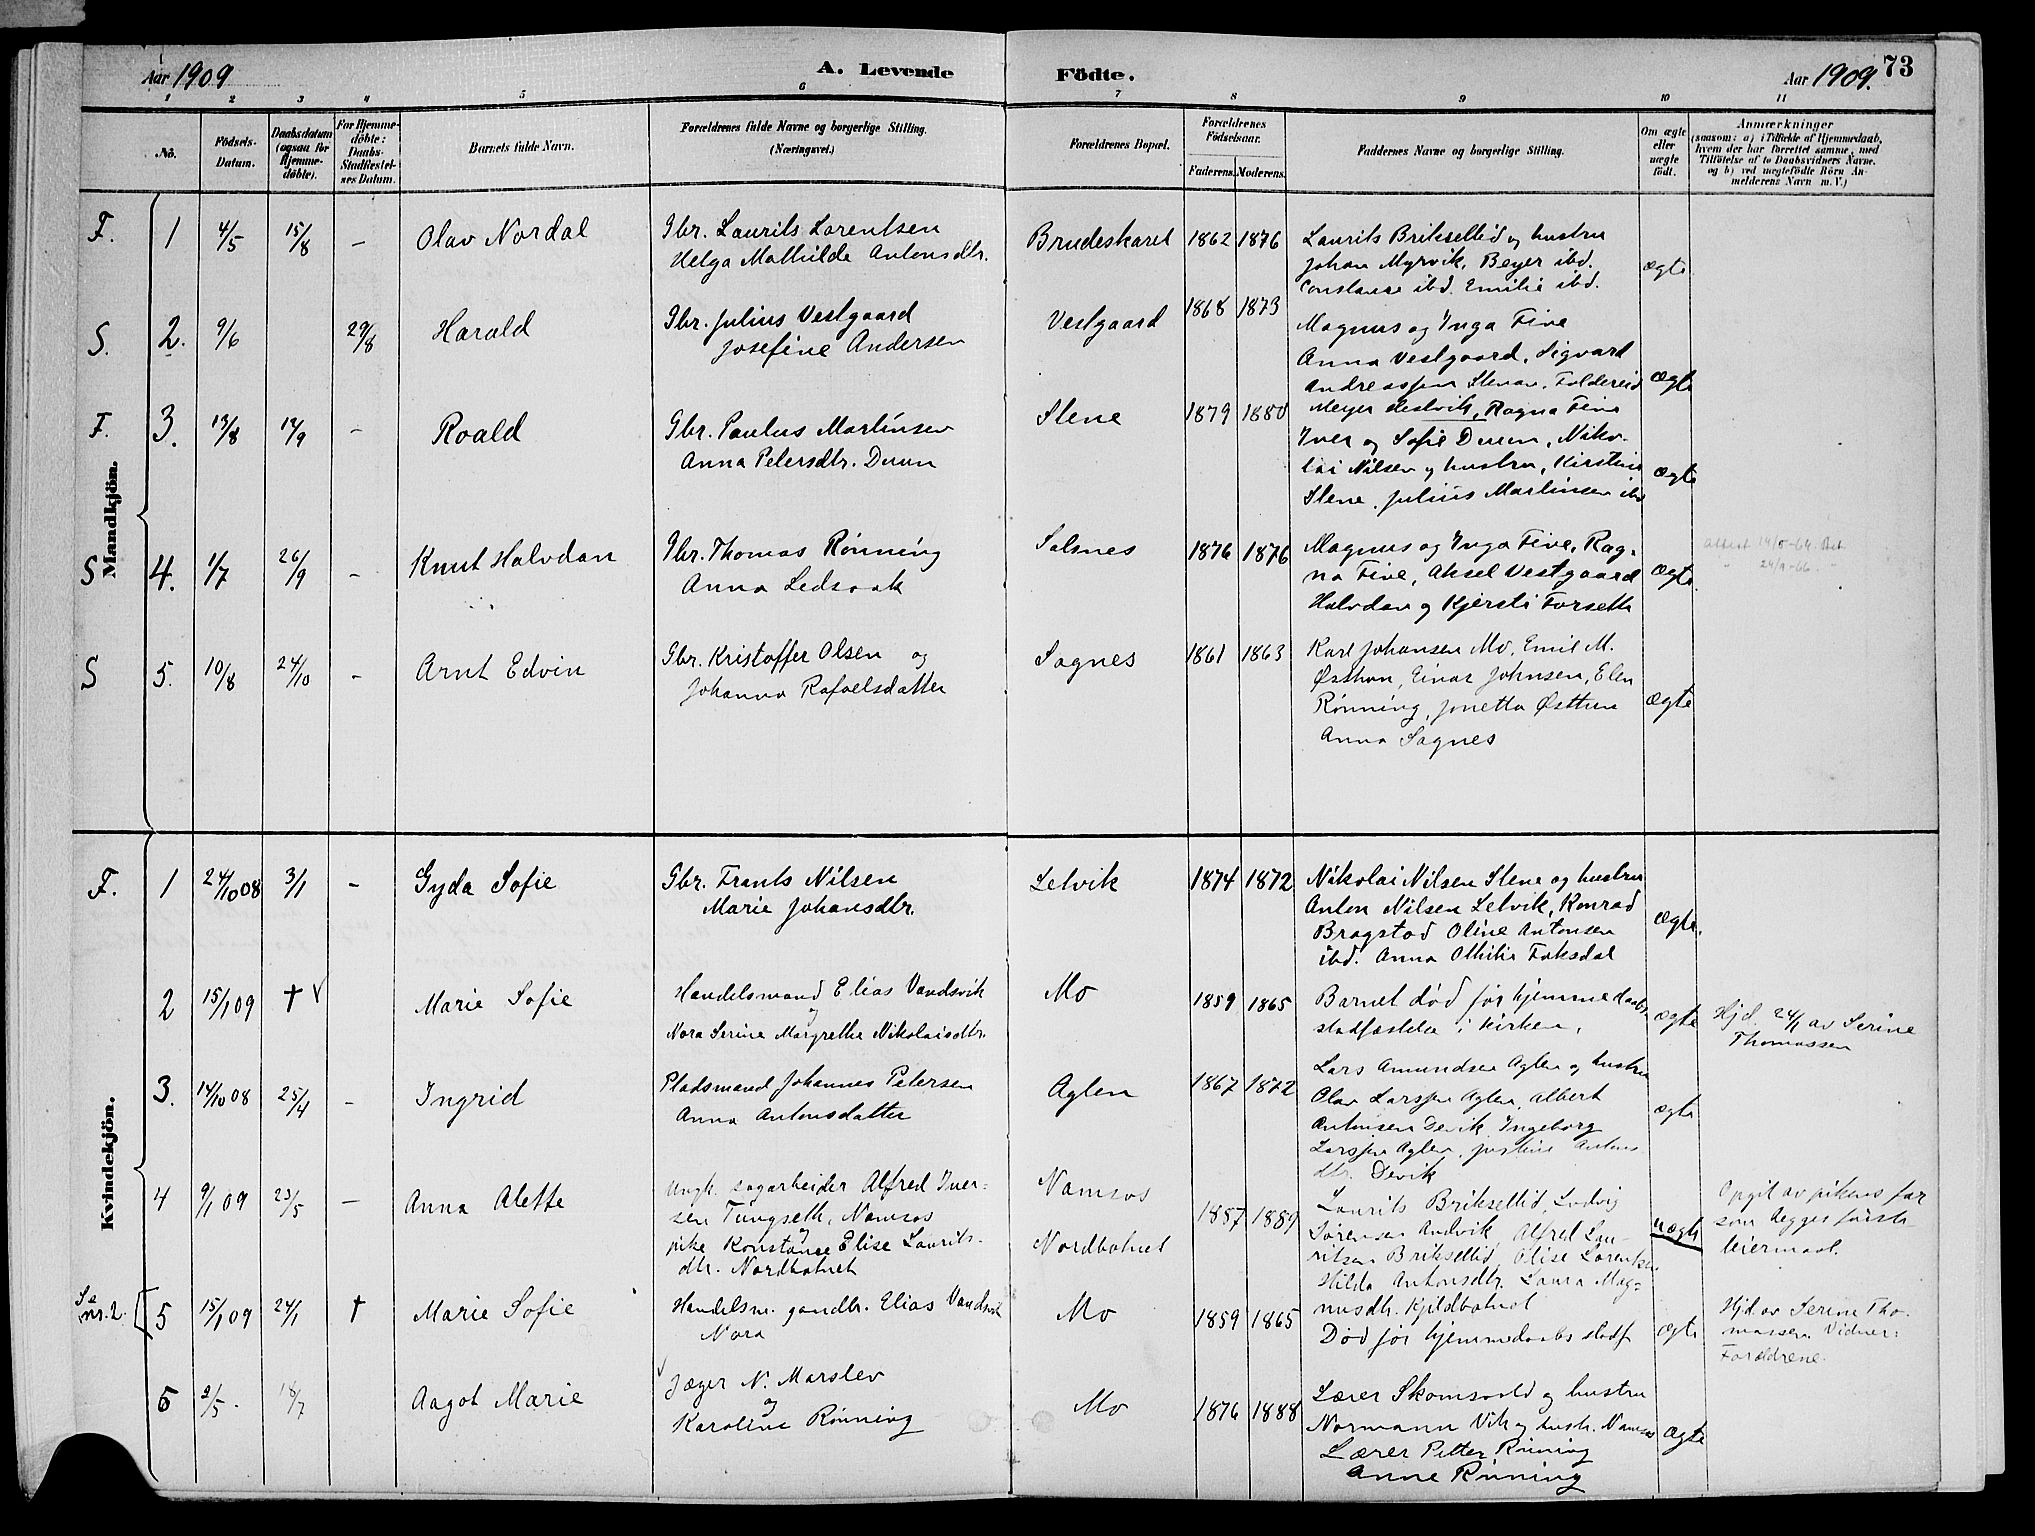 Aar 1909
A. Levende
Födte.
Aar 1909.
73
1 2 3 4 5 6 7 8 9 10 11
No.
Födsels-
Datum.
Daabsdatum
(ogsaa for
Hjemme-
döbte).
For Hjemme-
döbte:
Daabs-
Stadfæstel-
ses Datum.
Barnets fulde Navn.
Forældrenes fulde Navne og borgerlige Stilling.
(Næringsvei.)
Forældrenes Bopæl.
Forældrenes
Födselsaar.
Faderens. Moderens.
Faddernes Navne og borgerlige Stilling.
Om ægte
eller
uægte
födt.
Anmærkninger
(saasom: a) i Tilfælde af Hjemmedaab,
hvem der har forrettet samme, med
Tilföielse af to Daabsvidners Navne,
og b) ved uægtefödte Börn An-
melderens Navn m. V.)
Mandkjön.
F. 1 4/5 15/8 – Olav Nordal
Gbr. Laurits Lorentsen
Helga Mathilde Antonsdtr.
Brudeskaret 1862 1876
Laurits Brikseltid og hustru
Johan Myrvik, Beyer ibd.
Constanse ibd. Emilie ibd.
ægte
S. 2. 9/6 29/8 Harald
Gbr. Julius Vestgaard
Josefine Andersen
Vestgaard 1868 1873
Magnus og Inga Five
Anna Vestgaard, Sigvard
Andreassen Stenan, Foldereid
ægte
F. 3. 13/8 12/9 – Roald
Gbr. Paulus Martinsen
Anna Petersdtr. Duun
Stene 1879 1880
Meyer Hestvik, Ragna Five
Iver og Sofie Duun, Niko-
lai Nilsen og hustru, Kirstine
Stene, Julius Martinsen ibd
ægte
S 4. 1/7 26/9 – Knut Halvdan
Gbr. Thomas Rønning
Anna Ledsaak
Salsnes 1876 1876
Magnus og Inga Five, Rag-
na Five, Aksel Vestgaard
Halvdan og Kjersti Forseth
ægte
Attest 14/5-64
24/9-66
S 5. 10/8 24/10 – Arnt Edvin
Gbr. Kristoffer Olsen og
Johanna Rafaelsdatter
Sagnes 1861 1863
Karl Johansen Mo, Emil M.
Østhun, Einar Johnsen, Elen
Rønning, Jonetta Østhun
Anna Sagnes
ægte
Kvindekjön.
F. 1 24/10 08 3/1 – Gyda Sofie
Gbr. Frants Nilsen
Marie Johansdtr.
Letvik 1874 1872
Nikolai Nilsen Stene og hustru
Anton Nilsen Letvik, Konrad
Bragstad Oline Antonsen
ibd. Anna Othilie Faksdal
ægte.
2 15/1 09 † √ Marie Sofie
Handelsmand Elias Vandsvik
og
Nora Serine Margrethe Nikolaisdtr.
Mo 1859 1865
Barnet död för hjemmedaabs
stadfæstelse i kirken.
ægte
Hjd. 24/1 av Serine
Thomassen
3. 14/10 08 25/4 – Ingrid
Pladsmand Johannes Petersen
Anna Antonsdatter
Aglen 1867 1872
Lars Amundsen Aglen og hustru
Olav Larssen Aglen, Albert
Antonsen Devik, Ingeborg
Larssen Aglen, Justine Antons
dtr. Devik
ægte
4 9/1 09 23/5 – Anna Alette
Ungk. sagarbeider Alfred Iver-
sen Tungseth, Namsos
og
pike Konstanse Elise Laurits-
dtr. Nordbotnet
Namsos
Nordbotnet
1857 1889
Laurits Brikseltid, Ludvig
Sørensen Andvik, Alfred Lau-
ritsen Brikseltid, Elise Lorents.
Hilda Antonsdtr. Laura Mag-
nusdtr. Kjeldbotnet
uægte
Opgit av pikens far
som begges første
leiermaal.
Se nr. 2. 5 15/1 09 24/1 † Marie Sofie
Handelsm. gaardbr. Elias Vandsvik
Nora
Mo 1859 1865
Död för hjemmedaabs stadf
ægte
Hjd. av Serine Tho-
massen. Vidner:
Forældrene.
6 2/5. 18/7 Aagot Marie
√ Jæger N. Marslev
og
Karoline Rønning
Mo 1876 1888
Lærer Skomsvold og hustru
Normann Vik og hustr. Namsos
Lærer Petter Rønning
Anne Rønning
ægte